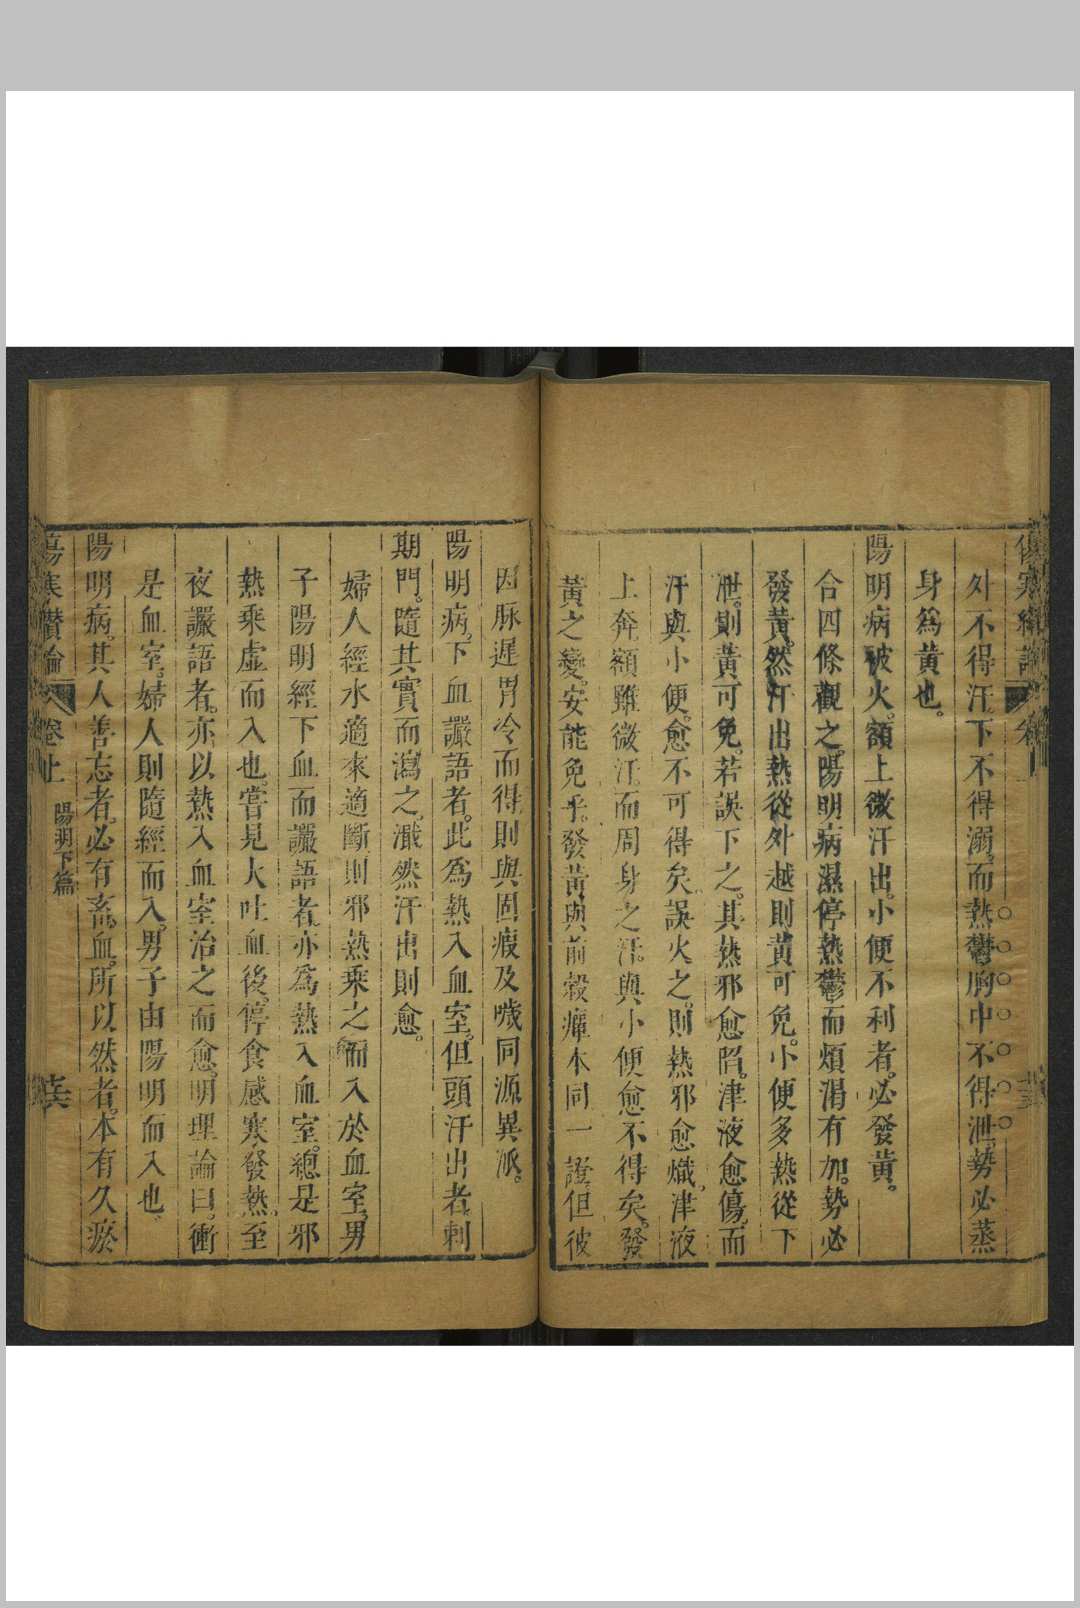 外不得汗。下不得溺。而熱鬱胸中不得泄。勢必蒸
身為黃也。
陽明病被火。額上微汗出。小便不利者。必發黃。
合四條觀之。陽明病濕停熱鬱而煩渴有加。勢必
發黃。然汗出熱從外越則黃可免。小便多熱從下
泄。則黃可免。若誤下之。其熱邪愈陷。津液愈傷。而
汗與小便。愈不可得矣。誤火之。則熱邪愈熾。津液
上奔。額雖微汗。而周身之汗。與小便愈不得矣。發
黃之變。安能免乎。發黃與前穀癉本同一證。但彼
因脉遲胃冷而得。則與固瘕及噦同源異派。
陽明病。下血讝語者。此為熱入血室。但頭汗出者。刺
期門。隨其實而瀉之。濈然汗出則愈。
婦人經水適來適斷。則邪熱乘之而入於血室。男
子陽明經下血而讝語者。亦為熱入血室。總是邪
熱乘虛而入也。嘗見大吐血後。停食感寒發熱。至
夜讝語者。亦以熱入血室治之而愈。明理論曰。衝
是血室。婦人則隨經而入。男子由陽明而入也。
陽明病。其人善忘者。必有畜血。所以然者。本有久瘀
傷寒纘論 卷上 陽明下篇